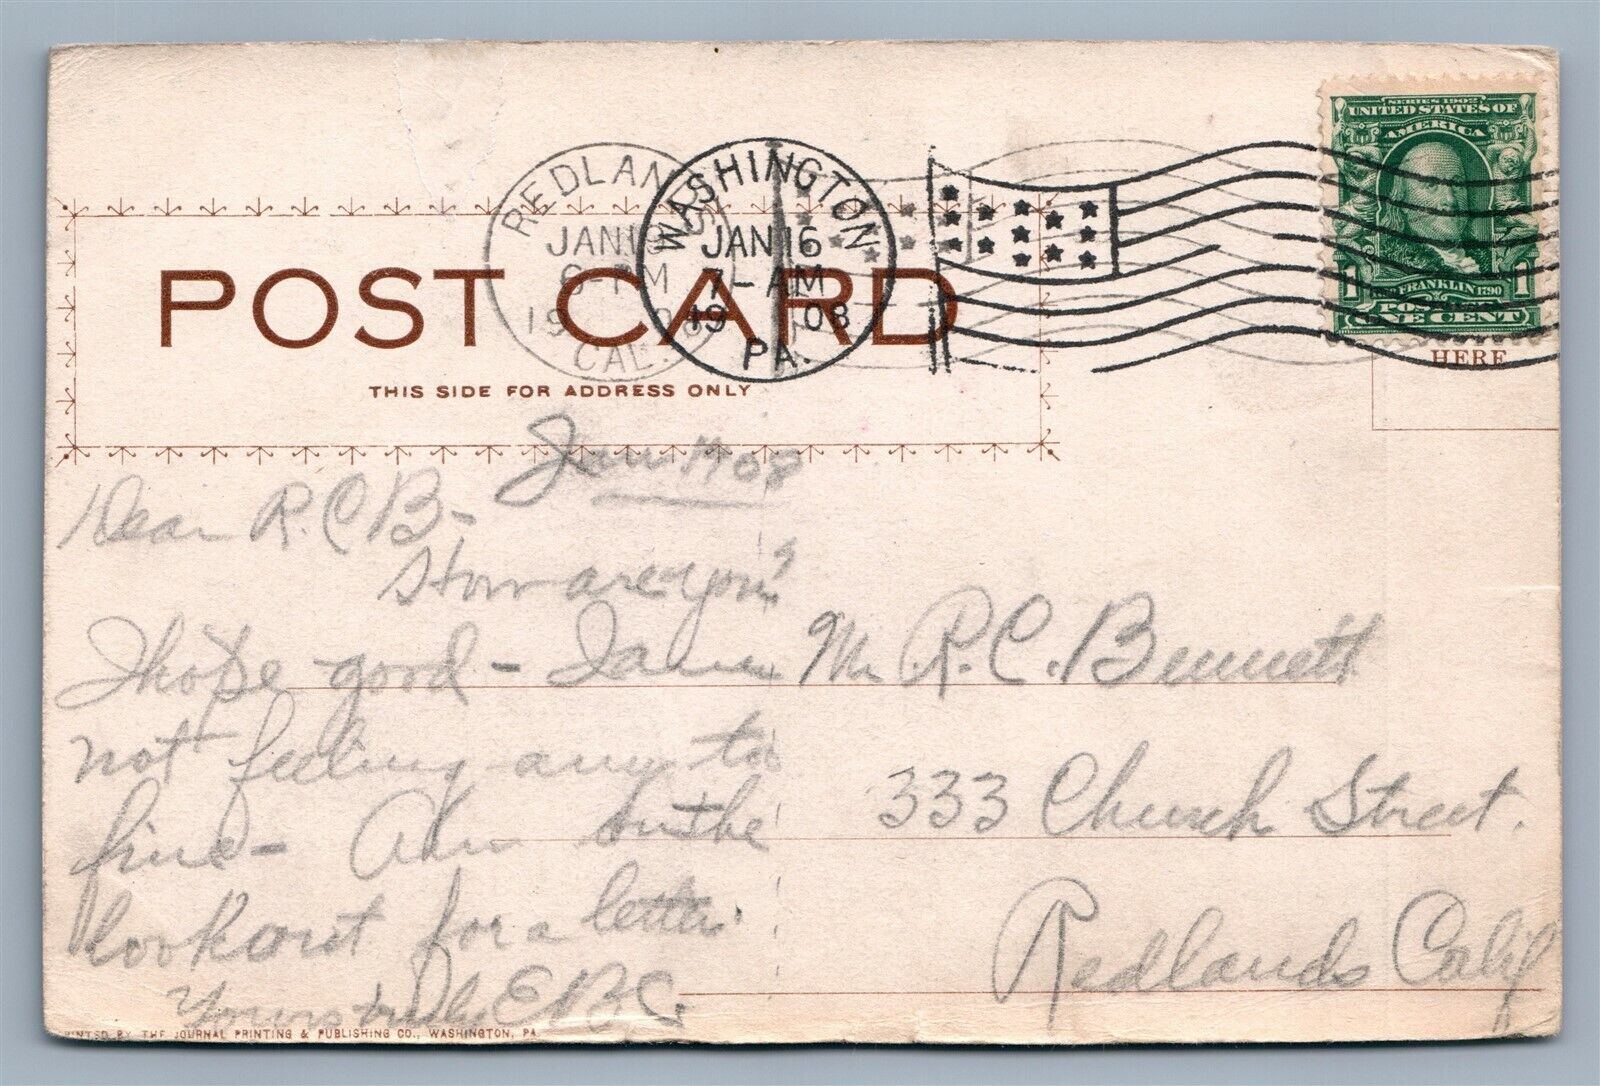 SERIES 1902
UNITED STATES OF
AMERICA
FRANKLIN 1790
1 1
ONE CENT
HERE
REDLANDS
JAN
6-PM
19
CAL.
WASHINGTON
JAN 16
7-AM
1908
PA.
POST CARD
THIS SIDE FOR ADDRESS ONLY
Jan 08
Dear R.C B-
How are you?
I hope good - I am
not feeling any to
fine - Am on the
lookout for a letter.
Yours truly E.B.C.
Mr. R. C. Bennett
333 Church Street.
Redlands Calif
PRINTED BY THE JOURNAL PRINTING & PUBLISHING CO., WASHINGTON, PA.